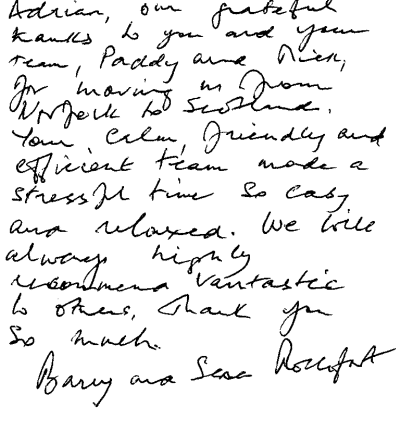 Adrian, our grateful
thanks to you and your
team, Paddy and Mick,
for moving us from
Norfolk to Scotland.
Your calm, friendly and
efficient team made a
stressful time so easy
and relaxed. We will
always highly
recommend Vantastic
to others, thank you
so much.
Barry and